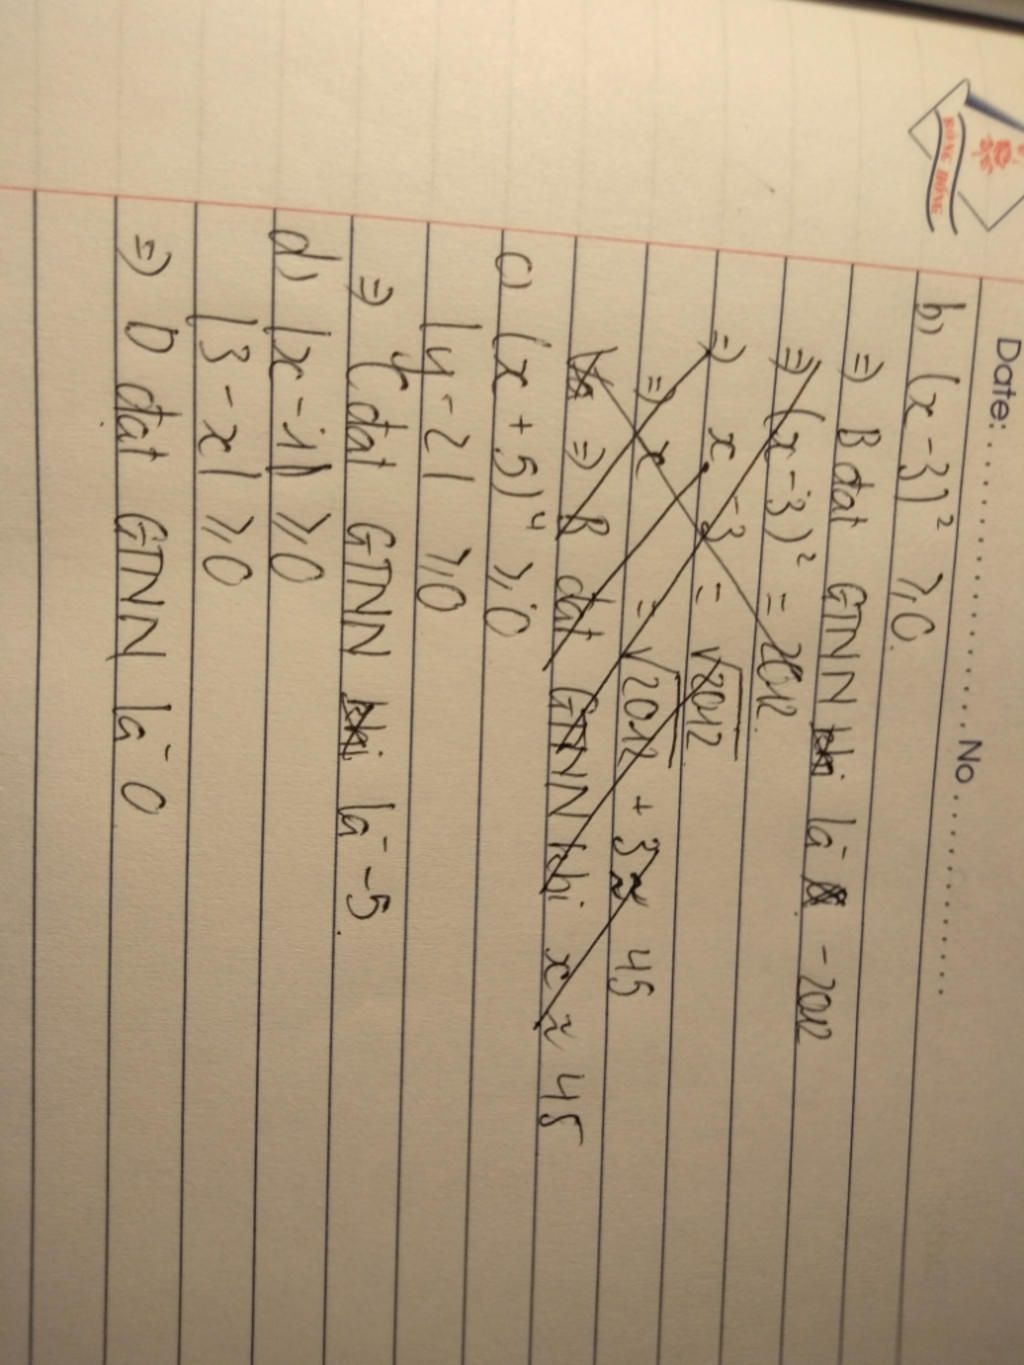 BÔNG HỒNG
Date: ............................ No ..................
b) (x - 3)² ≥ 0.
=> B đạt GTNN là - 2012
=> (x - 3)² = 2012
=> x - 3 = √2012
=> x = √2012 + 3 ≈ 45
=> B đạt GTNN khi x ≈ 45
c) (x + 5)⁴ ≥ 0
|y - 2| ≥ 0
=> C đạt GTNN là -5.
d) |x - 1| ≥ 0
|3 - x| ≥ 0
=> D đạt GTNN là 0